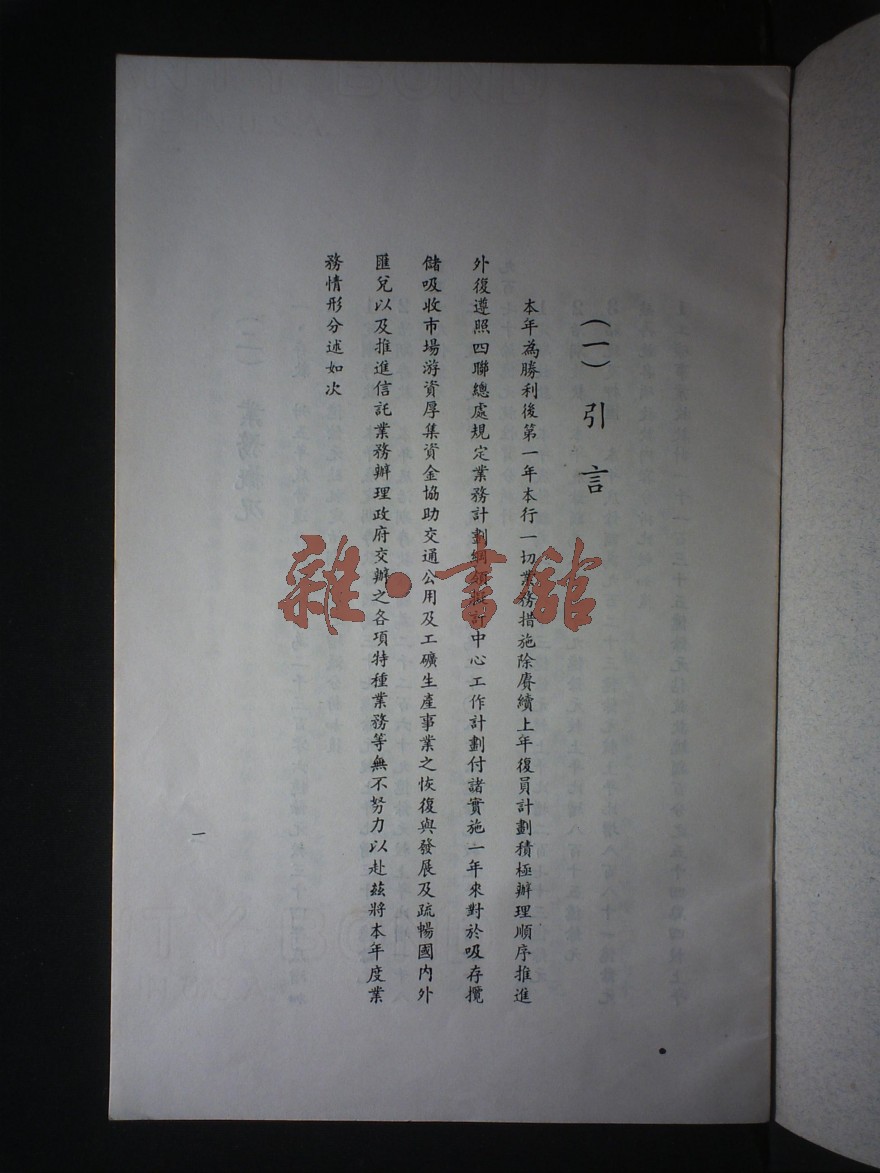 （一）引言
本年為勝利後第一年本行一切業務措施除賡續上年復員計劃積極辦理順序推進
外復遵照四聯總處規定業務計劃綱領擬訂中心工作計劃付諸實施一年來對於吸存攬
儲吸收市場游資厚集資金協助交通公用及工礦生產事業之恢復與發展及疏暢國內外
匯兌以及推進信託業務辦理政府交辦之各項特種業務等無不努力以赴茲將本年度業
務情形分述如次
一
雜·書館